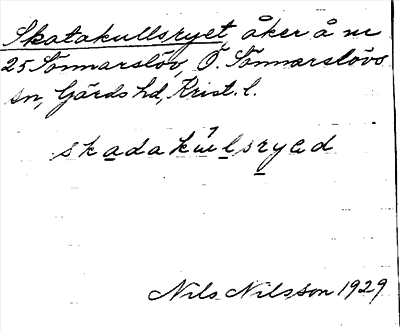 Skatakullsryet åker å nr
25 Sönnarslöv, Ö. Sönnarslövs
sn, Gärds hd, Krist. l.
skadakulsryed
Nils Nilsson 1929